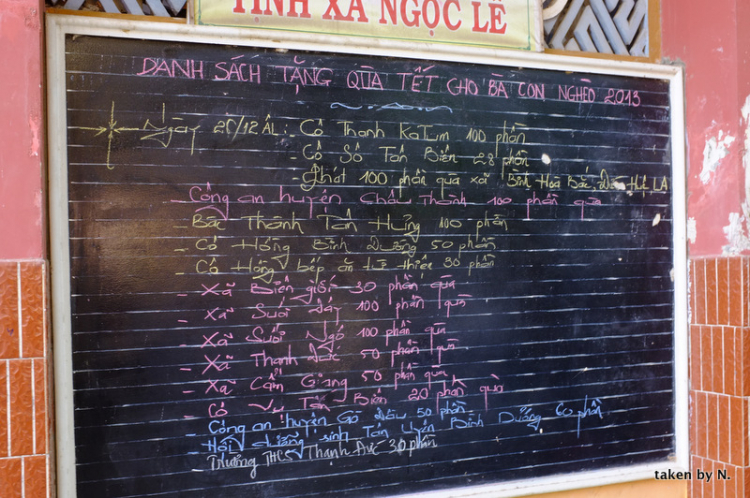 TỊNH XÁ NGỌC LỄ
DANH SÁCH TẶNG QÙA TẾT CHO BÀ CON NGHÈO 2013
Ngày 20/12 ÂL: - Cô Thanh KaTum 100 phần
- Cô Số Tân Biên 28 phần
- phát 100 phần quà xã Bình Hoà Bắc, Đức Huệ, LA
- Công an huyện Châu Thành 100 phần quà
- Bác Thành Tân Hưng 100 phần
- Cô Hồng Bình Dương 50 phần
- Cô Hồng bếp ăn từ thiện 30 phần
- Xã Biên giới 30 phần quà
- Xã Suối Dây 100 phần quà
- Xã Suối Ngô 100 phần quà
- Xã Thạnh Bắc 50 phần quà
- Xã Cẩm Giang 50 phần quà
- Cô Vy Tân Biên 20 phần quà
- Công an huyện Gò Dầu 50 phần
- Hội dưỡng sinh Tân Uyên Bình Dương 60 phần
Trường THCS Thạnh Đức 30 phần
taken by N.